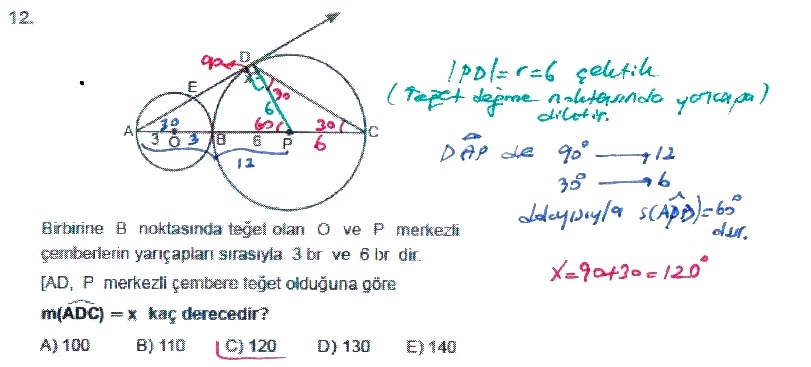 12.
D
E
A
O
B
P
C
90
x
30
6
60
30
30
3
3
6
6
12
|PD|=r=6 çektik
(Teğet değme noktasında yarıçapa)
diktir.
DAP de 90° → 12
30° → 6
dolayısıyla s(APD)=60°
dir.
X=90+30=120°
Birbirine B noktasında teğet olan O ve P merkezli
çemberlerin yarıçapları sırasıyla 3 br ve 6 br dir.
[AD, P merkezli çembere teğet olduğuna göre
m(ADC) = x kaç derecedir?
A) 100 B) 110 C) 120 D) 130 E) 140